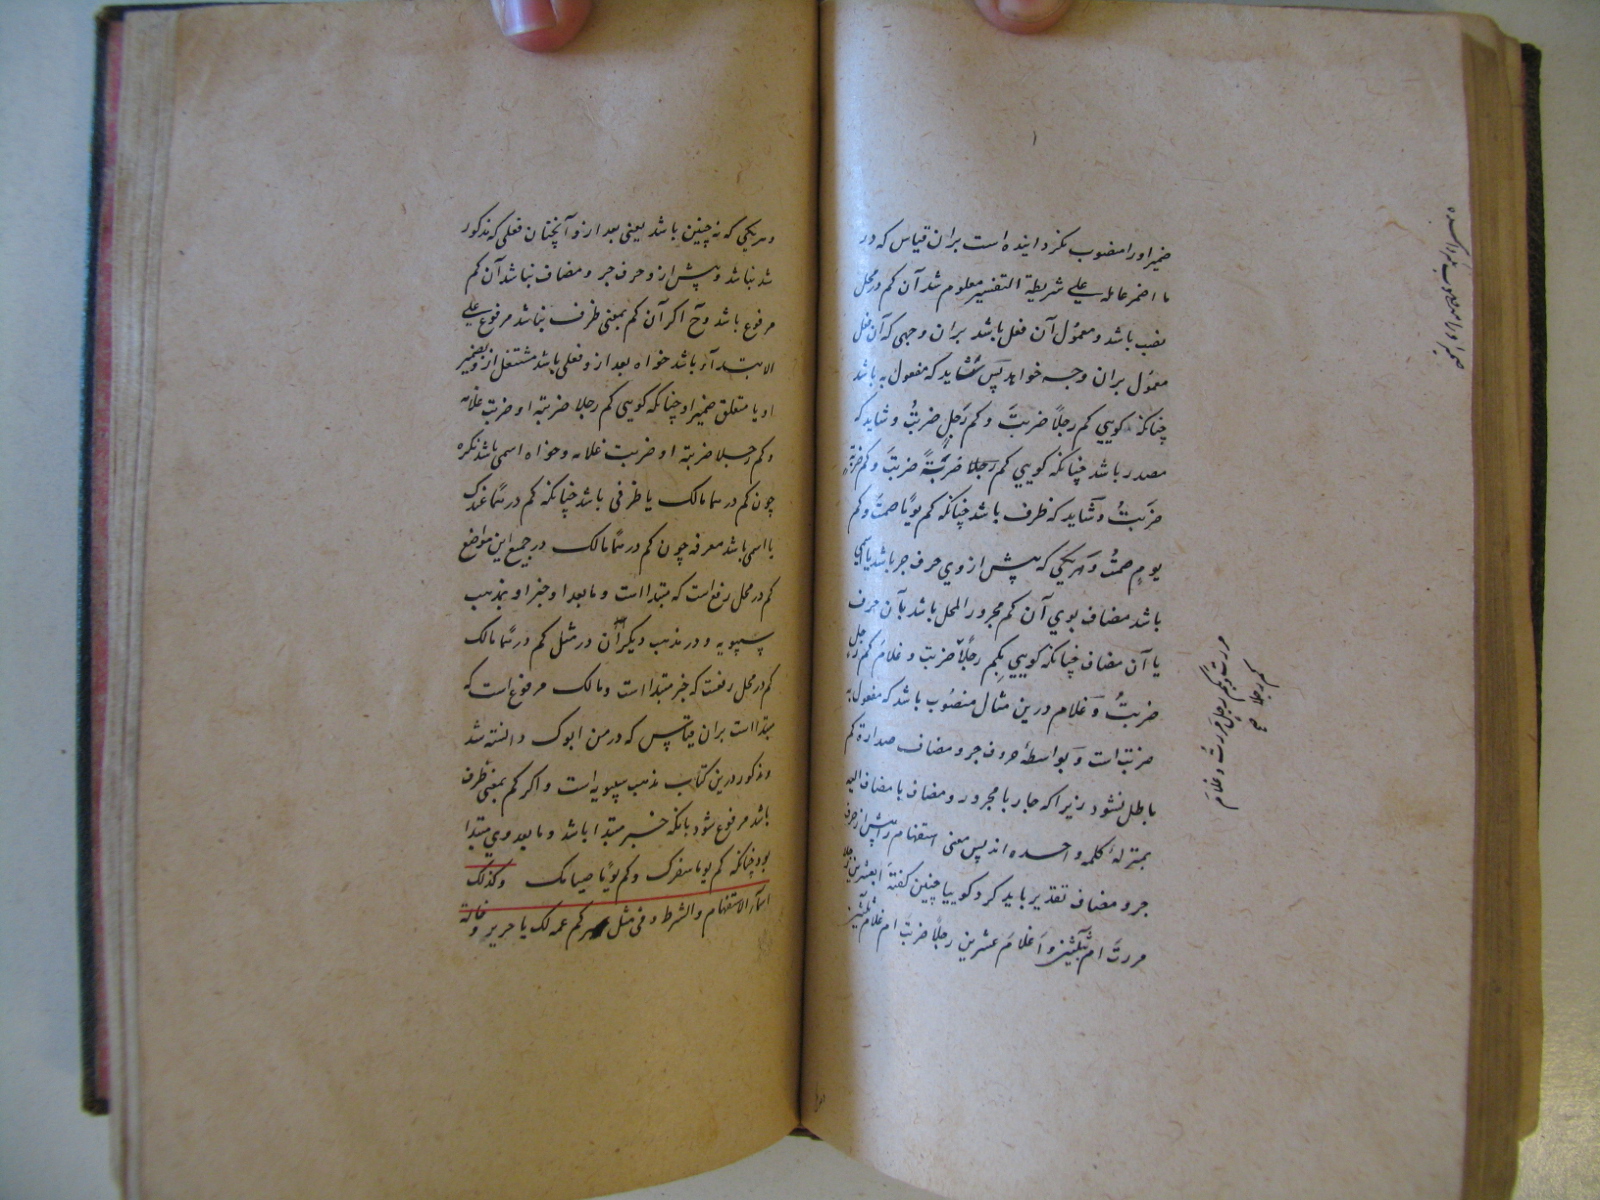 ضمیر او را منصوب نگردانیده است بران قیاس که در
ما اضمر عامله علی شریطة التفسیر معلوم شد آن کم در محل
نصب باشد و معمول آن فعل باشد بران وجهی که آن فعل
معمول بران وجه خواهد پس شاید که مفعول به باشد
چنانکه کویی کم رجلاً ضربتَ وکم رجلٍ ضربتُ و شاید که
مصدر باشد چنانکه کویی کم ضربةً ضربتَ وکم ضربةٍ
ضربتُ و شاید که ظرف باشد چنانکه کم یوماً صمتَ وکم
یومٍ صمتُ و هریکی که پیش از وی حرف جر باشد یا اسمی
باشد مضاف بوی آن کم مجرور المحل باشد بآن حرف
یا آن مضاف چنانکه کویی بکم رجلاً ضربتَ و غلامَ کم رجل
ضربتُ و غلام درین مثال منصوب باشد که مفعول به
ضربت است و بواسطۀ حروف جر و مضاف صدارة کم
باطل نشود زیرا که جار با مجرور و مضاف با مضاف الیه
بمنزلۀ کلمه واحده اند پس معنی استفهام را پیش از حرف
جر و مضاف تقدیر باید کرد کوییا چنین کفتۀ ابعشرین رجلا
مررتَ ام بثلثین و أغلامَ عشرین رجلاً ضربتَ ام غلام ثلثین
مررت بکم رجل مررت و غلام
کم رجلا
و هریکی که نه چنین باشد یعنی بعد از و آنچنان فعلی که مذکور
شد نباشد و پیش از و حرف جر و مضاف نباشد آن کم
مرفوع باشد و ح اکر آن کم بمعنی ظرف نباشد مرفوع علی
الابتداء باشد خواه بعد از و فعلی باشد مشتغل از و بضمیر
او یا متعلق ضمیر او چنانکه کویی کم رجلا ضربته او ضربت غلامه
وکم رجلا ضربته او ضربت غلامه و خواه اسمی باشد نکره
چون کم درهما مالک یا ظرفی باشد چنانکه کم درهما عندک
یا اسمی باشد معرفه چون کم درهما مالک در جمیع این مواضع
کم در محل رفع است که مبتدا است و ما بعد او خبر او بمذهب
سیبویه و در مذهب دیکران در مثل کم درهما مالک
کم در محل رفعست که خبر مبتدا است و مالک مرفوع است که
مبتدا است بران قیاس که در من ابوک دانسته شد
و مذکور درین کتاب مذهب سیبویه است و اکر کم بمعنی ظرف
باشد مرفوع شود بانکه خبر مبتدا باشد و ما بعد وی مبتدا
بود چنانکه کم یوما سفرک وکم یوماً صیامک وکذلک
اسماء الاستفهام والشرط و فی مثل کم عمة لک یا جریر و خالة